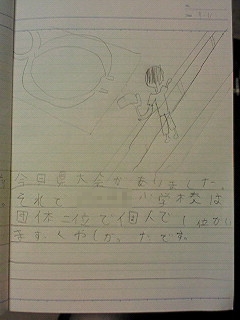 今日夏大会がありました。
それで 小学校は
団体二位で個人で1位がい
ます。くやしかったです。